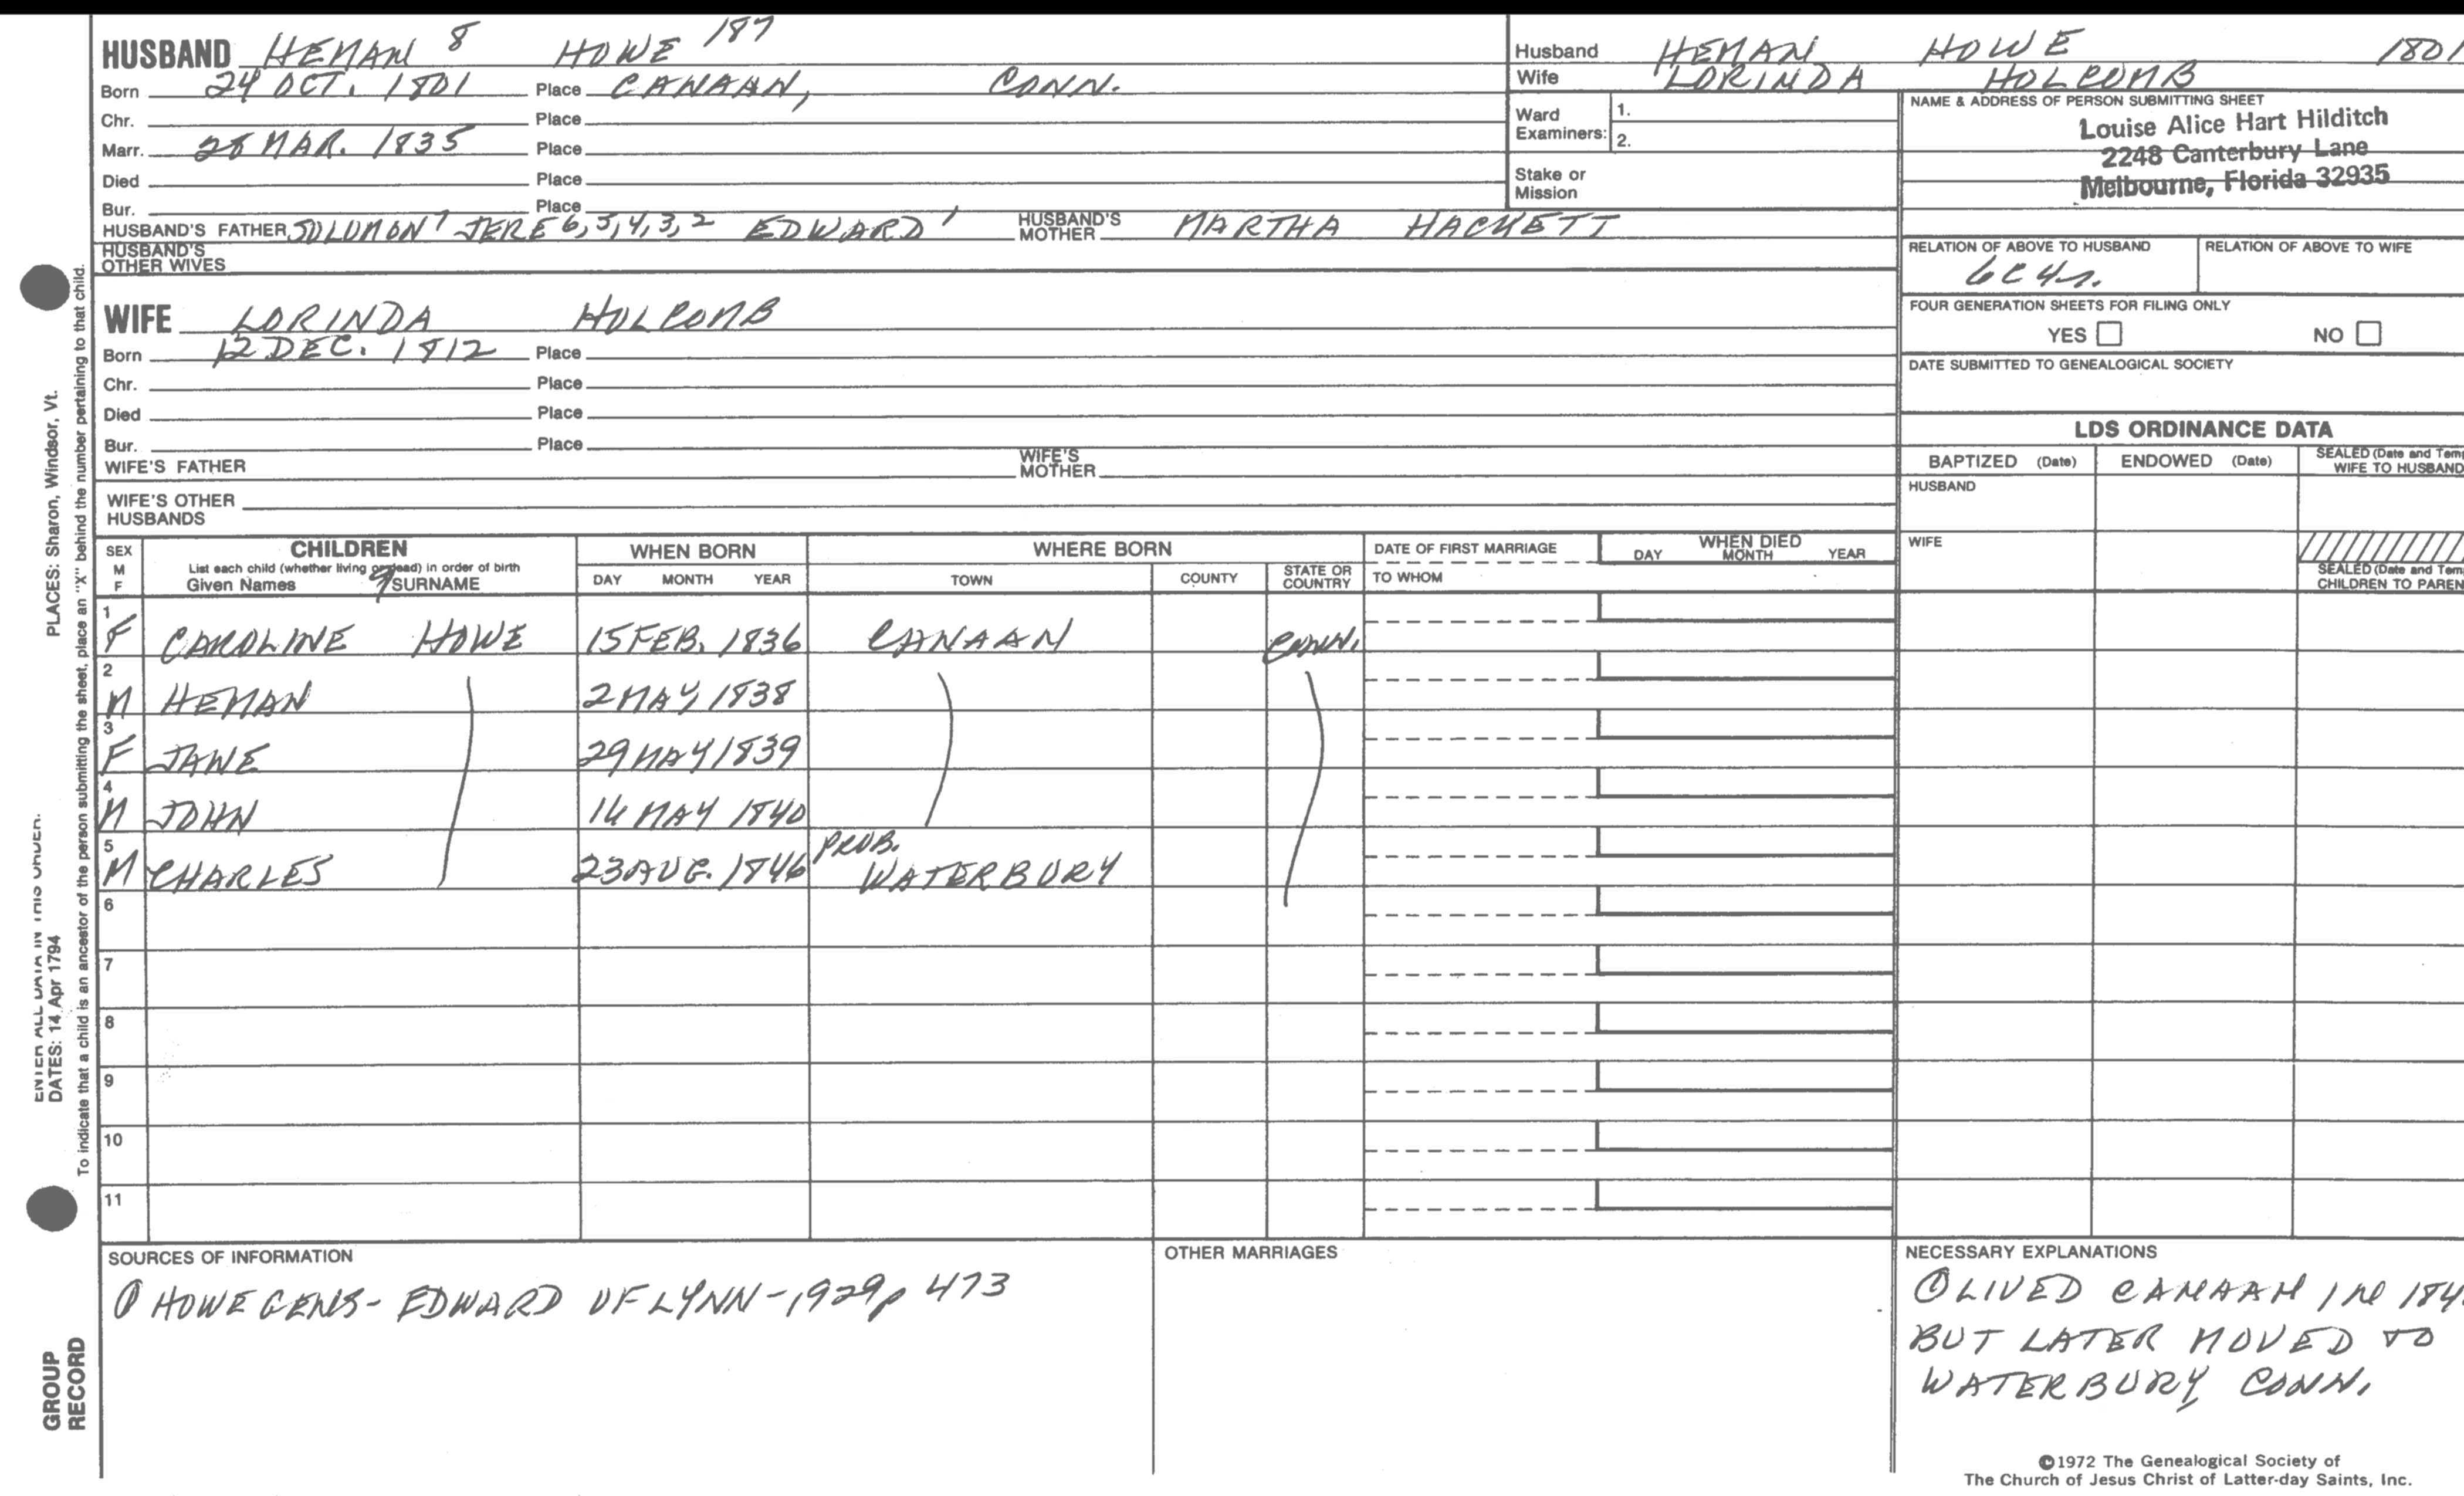 HUSBAND HEMAN 8 HOWE 187
Born 24 OCT. 1801 Place CANAAN, CONN.
Chr. Place
Marr. 28 MAR. 1835 Place
Died Place
Bur. Place
HUSBAND'S FATHER SOLOMON 7 JERE 6, 5, 4, 3, 2 EDWARD 1 HUSBAND'S MOTHER MARTHA HACKETT
HUSBAND'S OTHER WIVES
WIFE LORINDA HOLCOMB
Born 12 DEC. 1812 Place
Chr. Place
Died Place
Bur. Place
WIFE'S FATHER WIFE'S MOTHER
WIFE'S OTHER HUSBANDS
Husband HEMAN HOWE 1801
Wife LORINDA HOLCOMB
Ward Examiners: 1.
2.
Stake or Mission
NAME & ADDRESS OF PERSON SUBMITTING SHEET
Louise Alice Hart Hilditch
2248 Canterbury Lane
Melbourne, Florida 32935
RELATION OF ABOVE TO HUSBAND RELATION OF ABOVE TO WIFE
6C4r.
FOUR GENERATION SHEETS FOR FILING ONLY
YES NO
DATE SUBMITTED TO GENEALOGICAL SOCIETY
LDS ORDINANCE DATA
BAPTIZED (Date) ENDOWED (Date) SEALED (Date and Tem
WIFE TO HUSBAND
HUSBAND
WIFE
SEALED (Date and Tem
CHILDREN TO PAREN
SEX M F
CHILDREN
List each child (whether living or dead) in order of birth
Given Names 9 SURNAME
WHEN BORN
DAY MONTH YEAR
WHERE BORN
TOWN COUNTY STATE OR COUNTRY
DATE OF FIRST MARRIAGE
TO WHOM
WHEN DIED
DAY MONTH YEAR
1 F CAROLINE HOWE 15 FEB. 1836 CANAAN CONN.
2 M HEMAN 2 MAY 1838
3 F JANE 29 MAY 1839
4 M JOHN 14 MAY 1840
5 M CHARLES 23 AUG. 1846 PROB. WATERBURY
6
7
8
9
10
11
SOURCES OF INFORMATION
① HOWE GENS - EDWARD OF LYNN - 1929 p 473
OTHER MARRIAGES
NECESSARY EXPLANATIONS
① LIVED CANAAN IN 184
BUT LATER MOVED TO
WATERBURY CONN.
©1972 The Genealogical Society of
The Church of Jesus Christ of Latter-day Saints, Inc.
PLACES: Sharon, Windsor, Vt.
ENTER ALL DATA IN THIS ORDER:
DATES: 14 Apr 1794
To indicate that a child is an ancestor of the person submitting the sheet, place an "X" behind the number pertaining to that child.
GROUP
RECORD